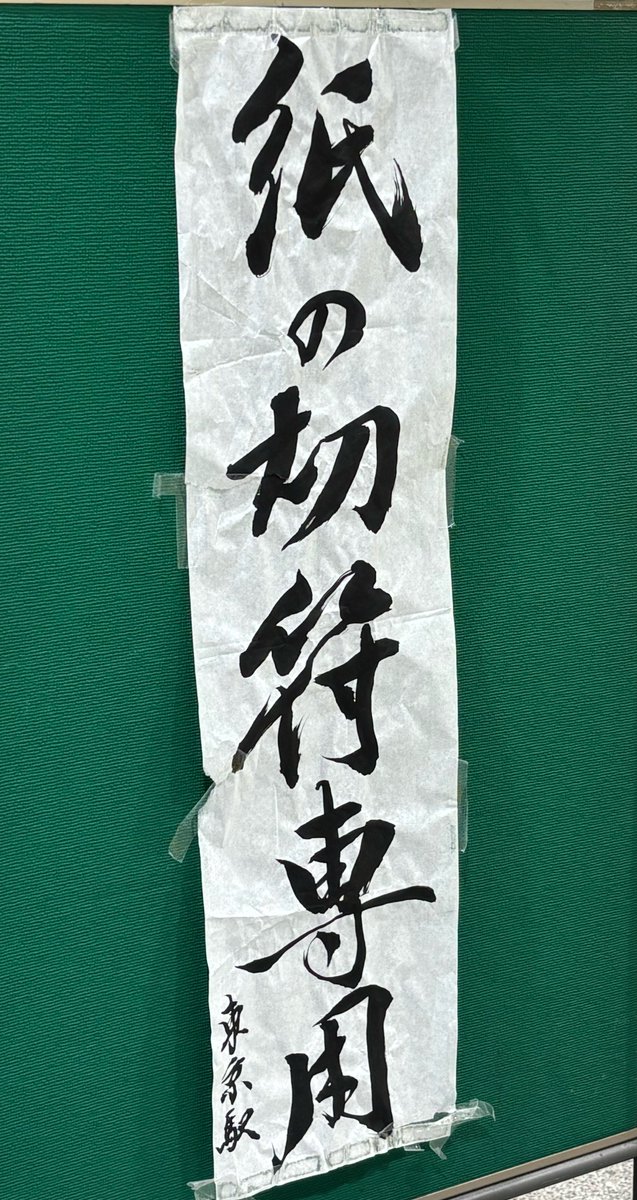 紙の切符専用
東京駅